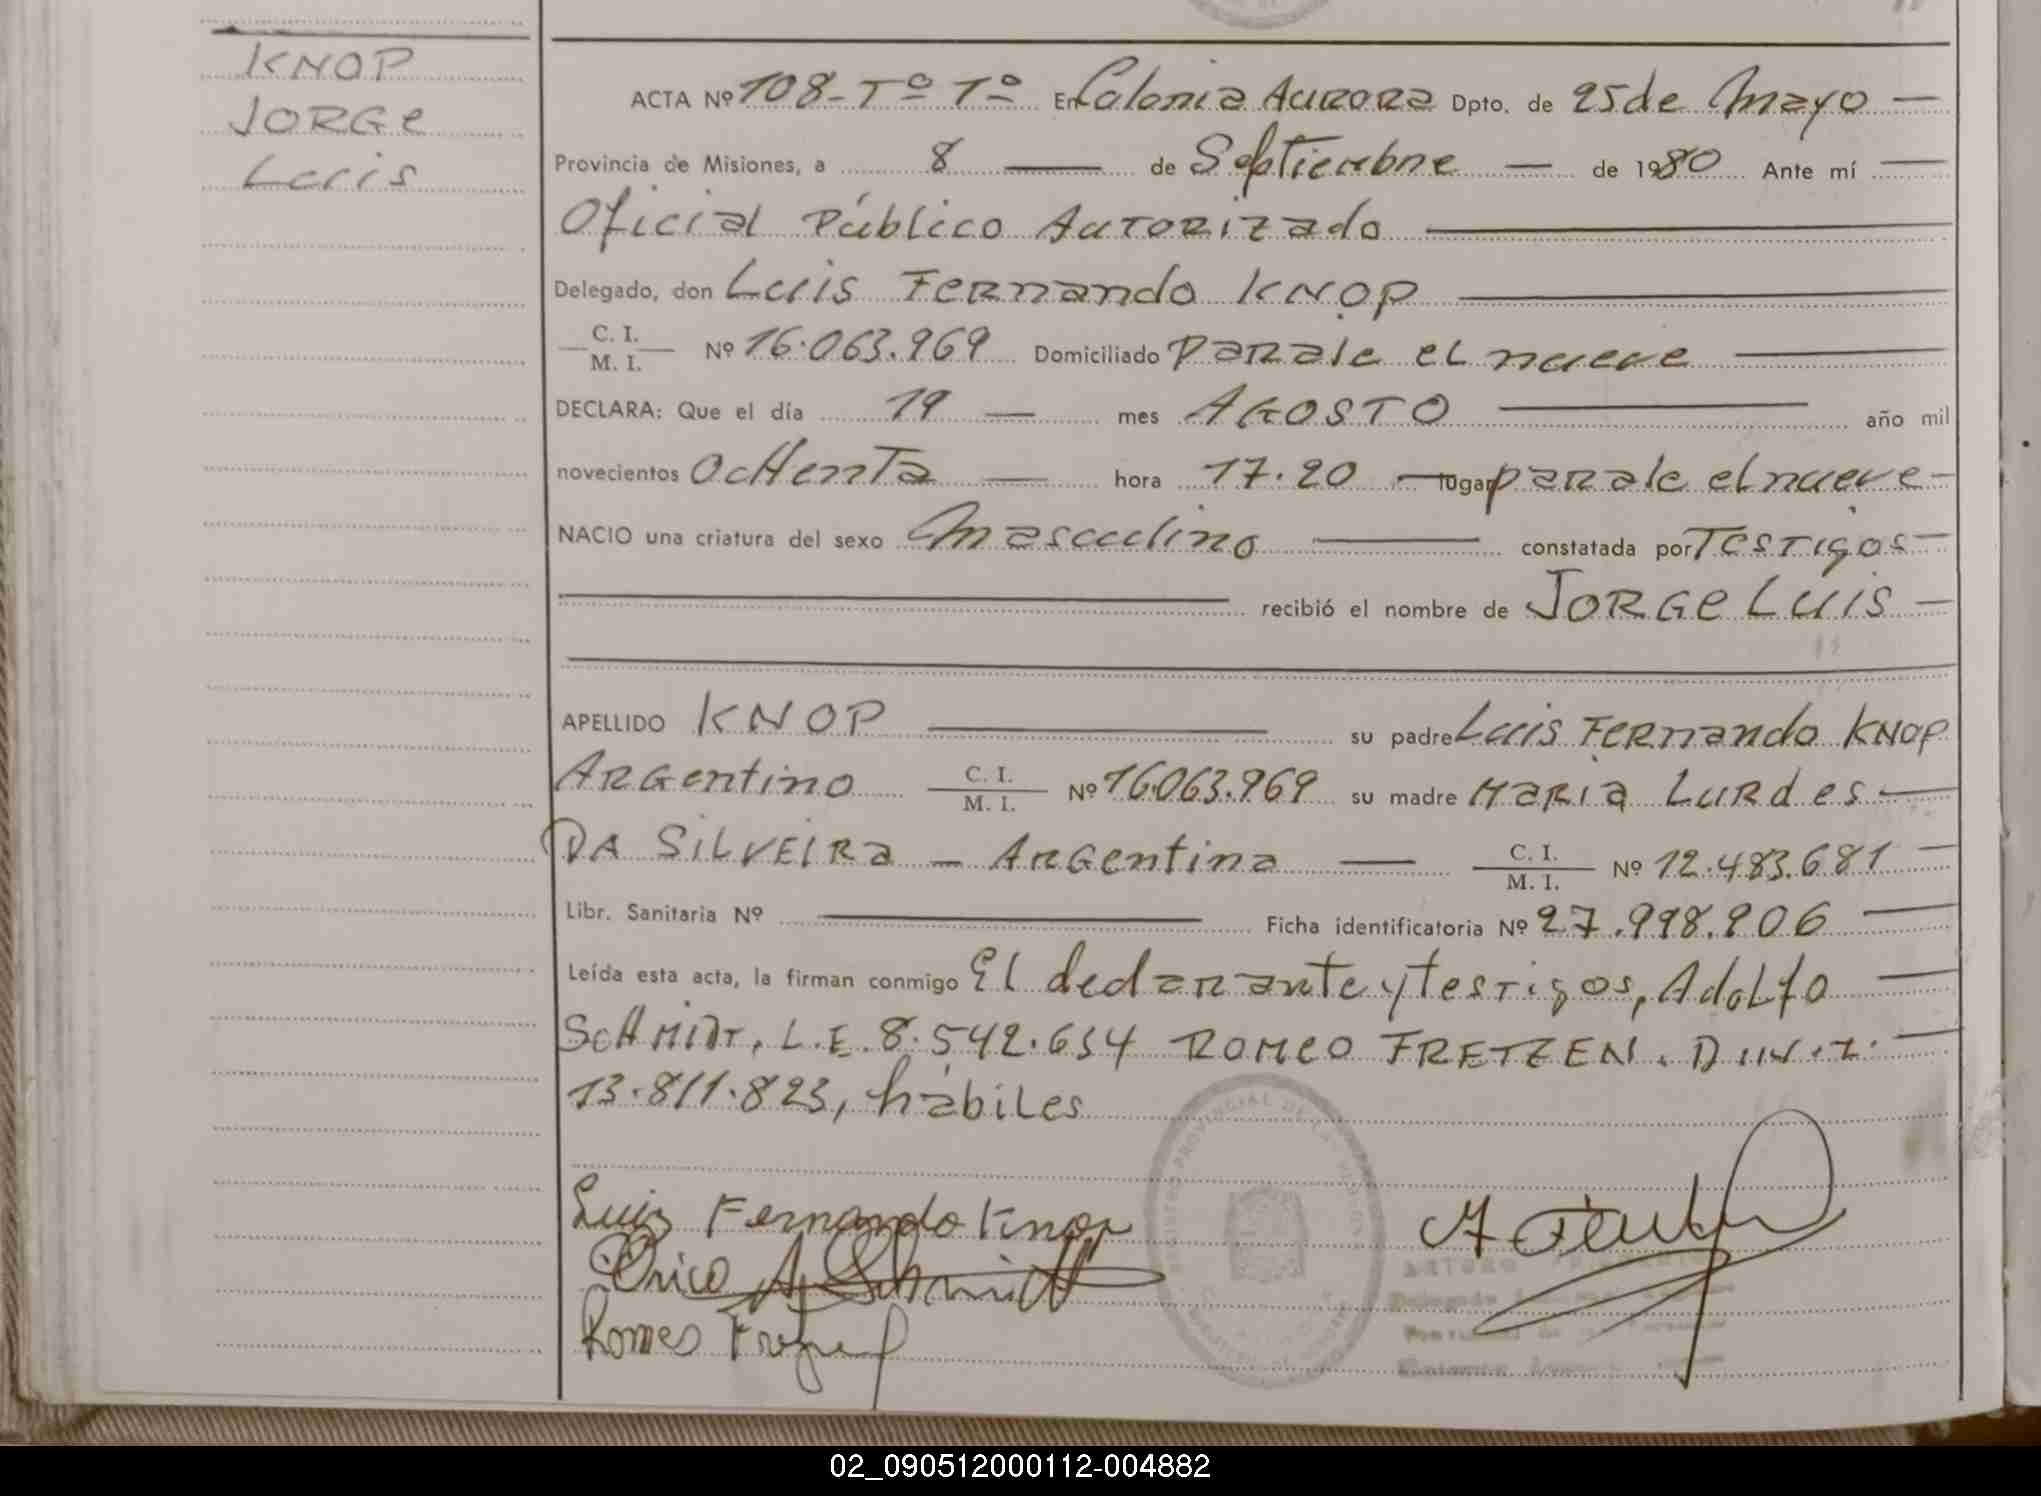 KNOP
JORGE
Luis
ACTA Nº 108 - Tº 1º En Colonia Aurora Dpto. de 25 de Mayo —
Provincia de Misiones, a 8 — de Septiembre — de 1980 Ante mí —
Oficial Público Autorizado —
Delegado, don Luis Fernando KNOP —
C. I.
M. I. Nº 16.063.969 Domiciliado paraje el nueve —
DECLARA: Que el día 19 — mes AGOSTO — año mil
novecientos ochenta — hora 17.20 — lugar paraje el nueve —
NACIO una criatura del sexo Masculino — constatada por Testigos —
— recibió el nombre de JORGE Luis —
APELLIDO KNOP — su padre Luis Fernando KNOP
Argentino C. I.
M. I. Nº 16.063.969 su madre Maria Lurdes —
DA SILVEIRA — Argentina — C. I.
M. I. Nº 12.483.681 —
Libr. Sanitaria Nº — Ficha identificatoria Nº 27.998.906 —
Leída esta acta, la firman conmigo El declarante y testigos, Adolfo —
SCHMIDT, L.E. 8.542.634 ROMEO FRETZEN. D.N.I. —
13.811.823, hábiles
Luis Fernando Knop
Erico A. Schmidt
Romeo
ARTURO
Delegado
02_090512000112-004882